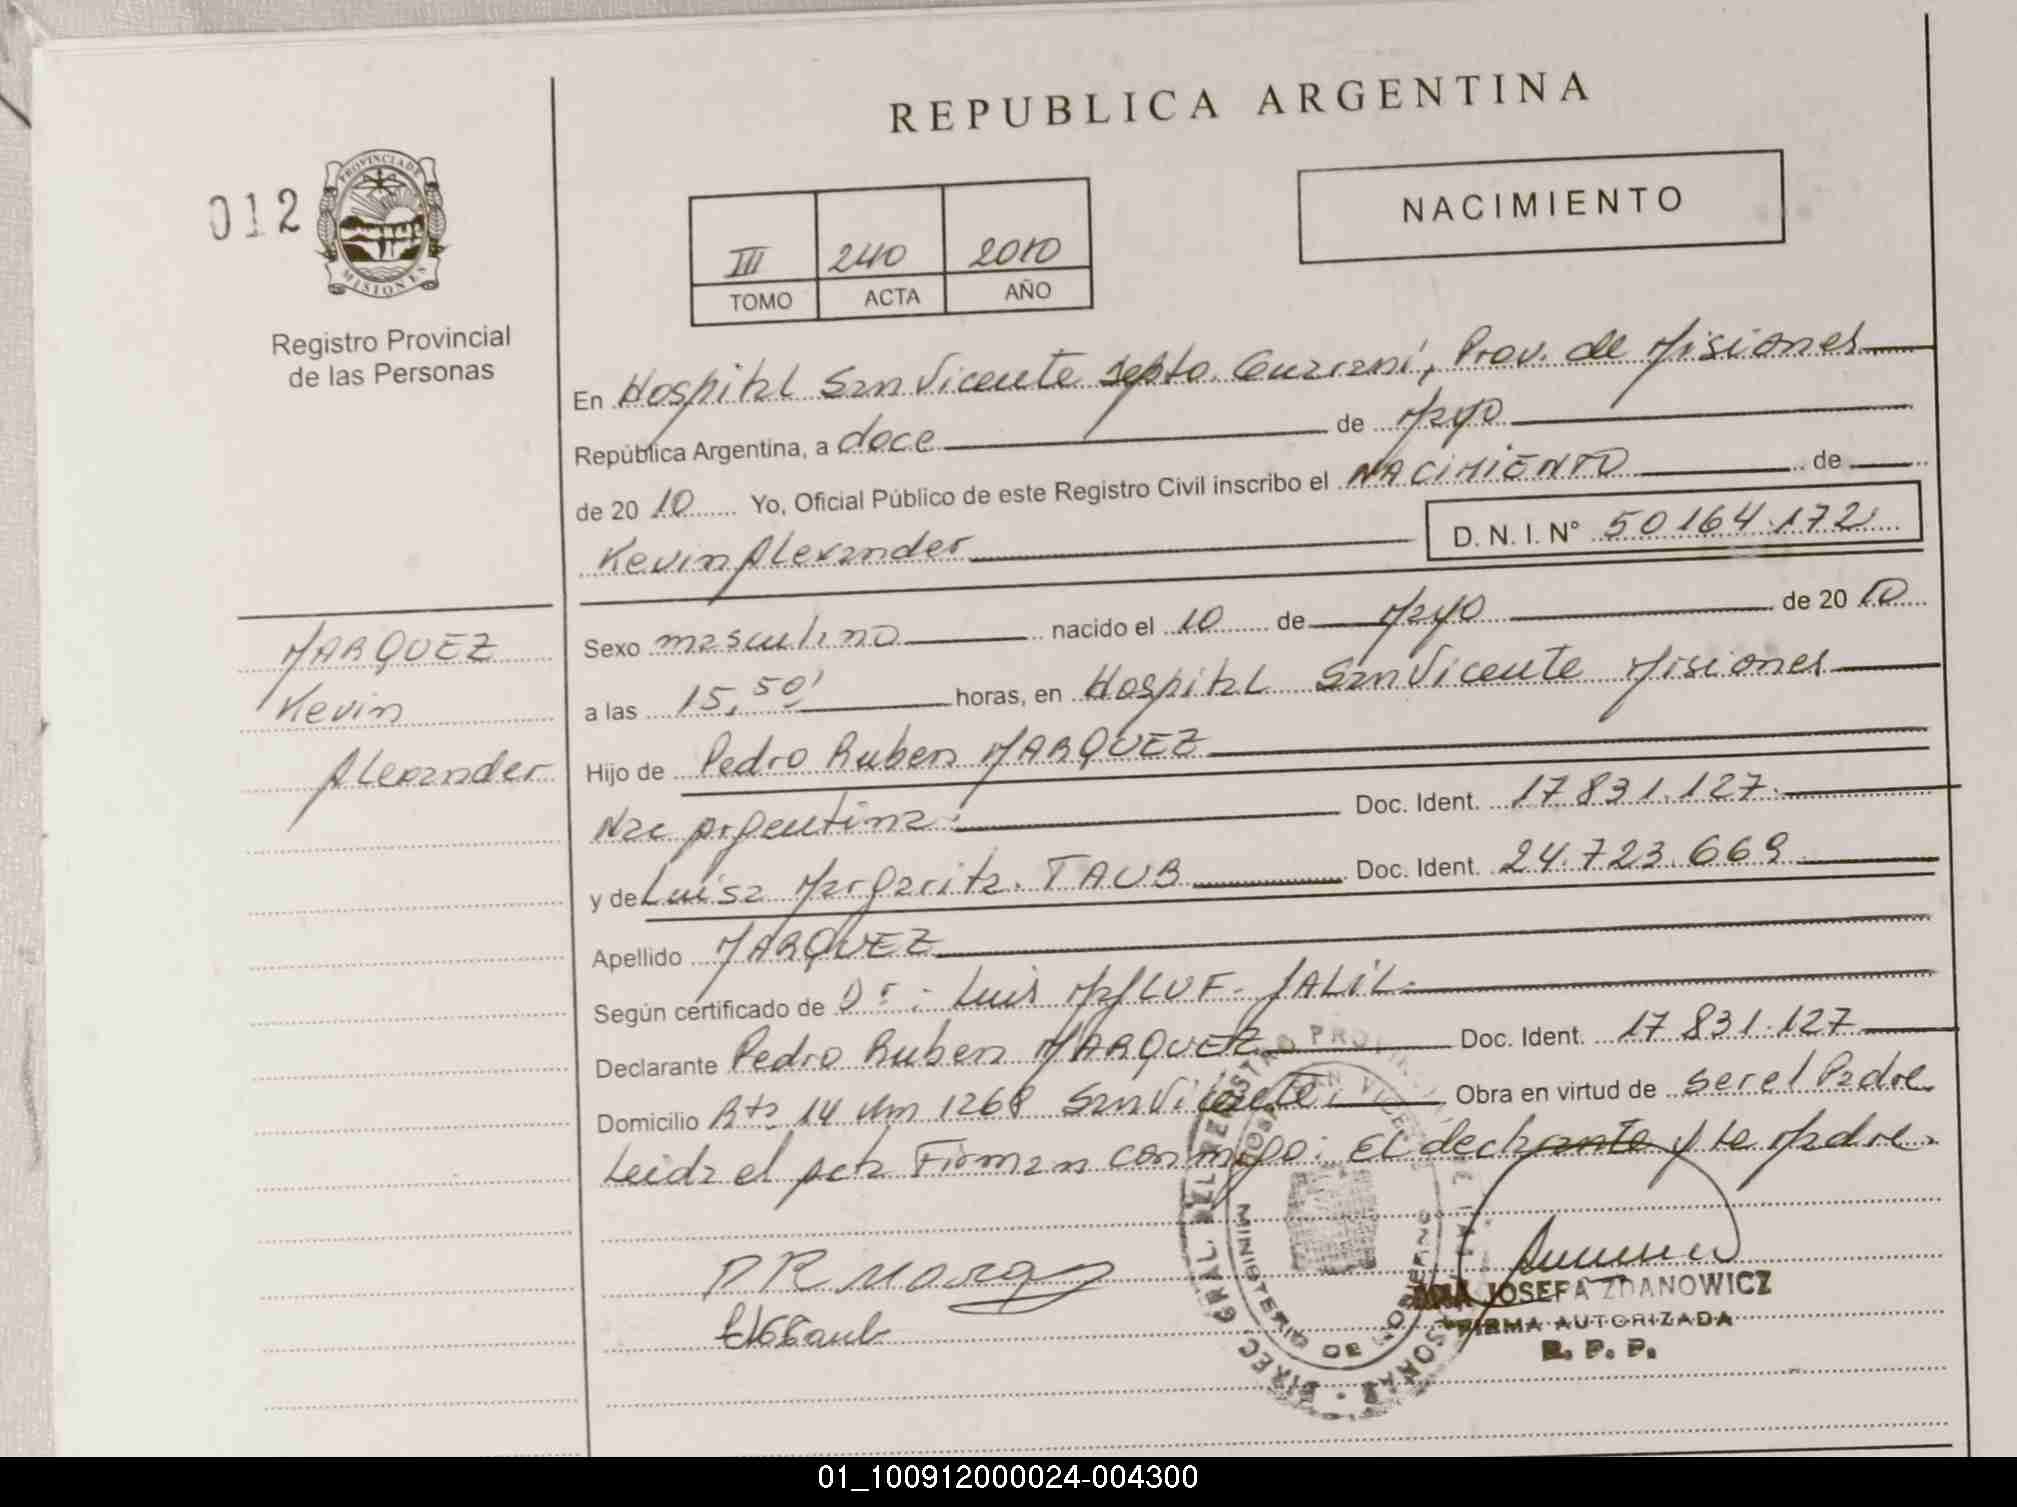 REPUBLICA ARGENTINA
012
PROVINCIA DE MISIONES
Registro Provincial
de las Personas
III 240 2010
TOMO ACTA AÑO
NACIMIENTO
En Hospital San Vicente Depto. Guarani, Prov. de Misiones
República Argentina, a doce de Mayo
de 20 10 Yo, Oficial Público de este Registro Civil inscribo el NACIMIENTO de
Kevin Alexander D. N. I. N° 50164.172
MARQUEZ
Kevin
Alexander
Sexo masculino nacido el 10 de Mayo de 20 10
a las 15,50' horas, en Hospital San Vicente Misiones
Hijo de Pedro Ruben MARQUEZ
Nac Argentina. Doc. Ident. 17831.127.
y de Luisa Margarita. TAUB Doc. Ident. 24.723.669
Apellido MARQUEZ
Según certificado de Dr: Luis MALUF. JALIL.
Declarante Pedro Ruben MARQUEZ Doc. Ident. 17831.127
Domicilio Rta 14 Km 1268 San Vicente. Obra en virtud de ser el Padre.
Leida el acta Firman conmigo: El declarante y la Madre.
JOSEFA ZDANOWICZ
FIRMA AUTORIZADA
R. P. P.
MINISTERIO DE GOBIERNO
01_100912000024-004300